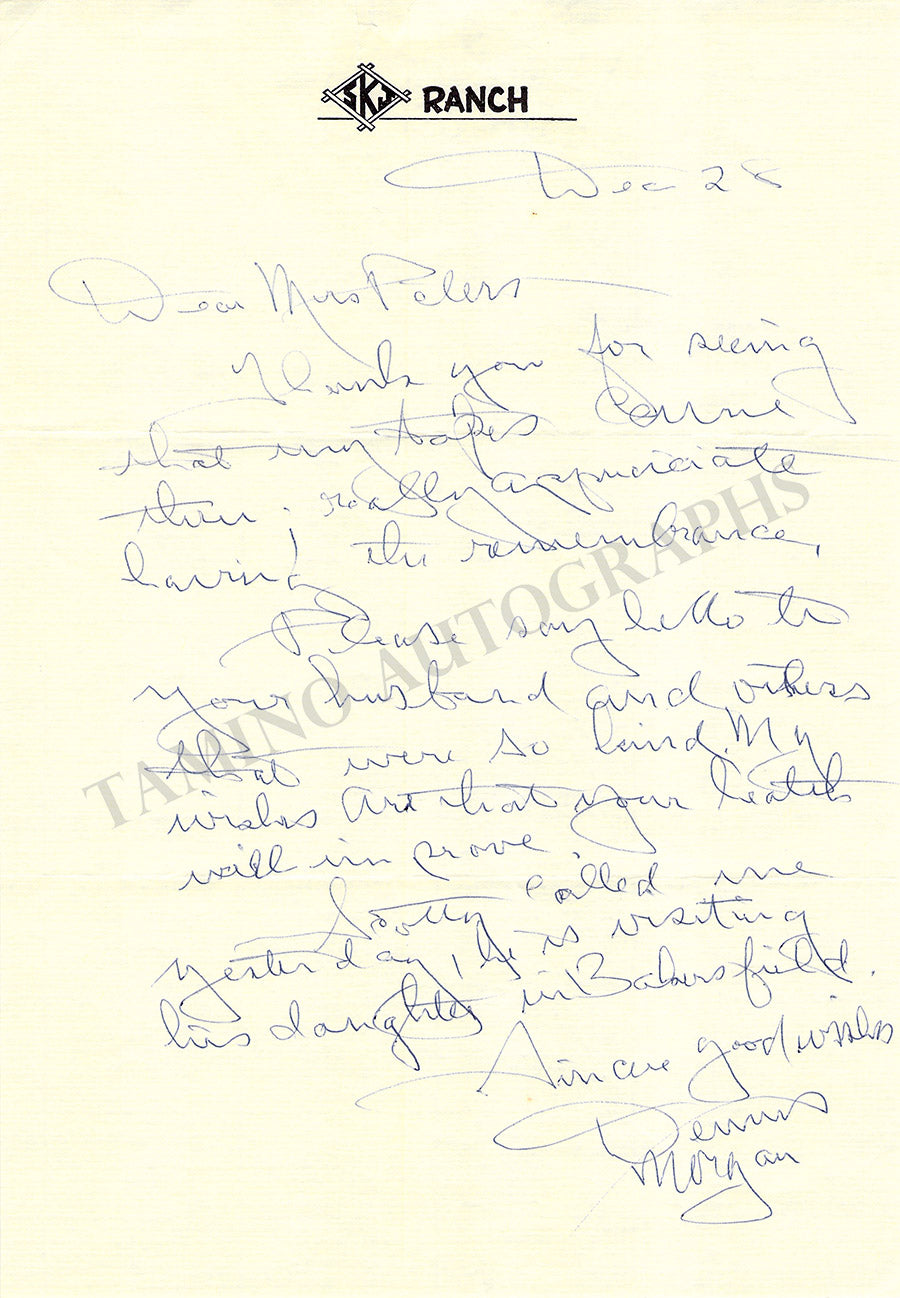 SKJ RANCH
Dec 28
Dear Mrs Peters
Thank you for seeing
that my tapes came
thru. really appreiciate
having the remembrance,
Please say hello to
your husband and others
that were so kind. My
wishes are that your health
will improve
Scotty called me
yesterday, he is visiting
his daughter in Bakersfield.
Sincere good wishes
Dennis
Morgan
TAMINO AUTOGRAPHS